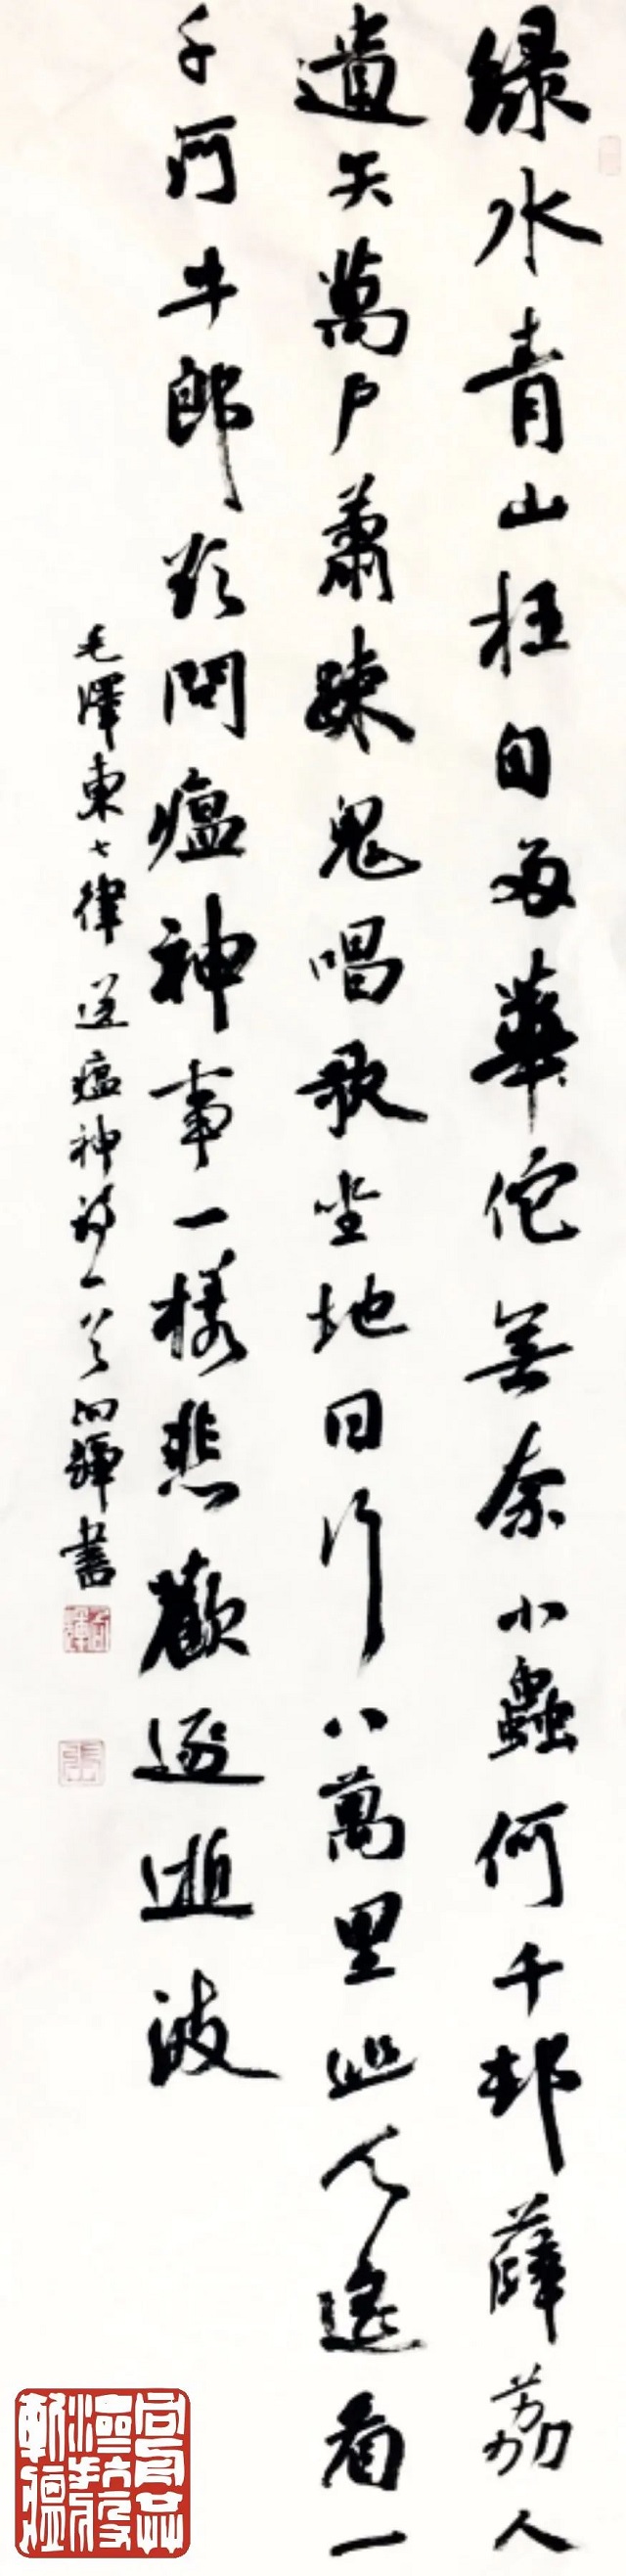 緑水青山枉自多華佗無奈小蟲何千邨薜荔人
遺矢萬户蕭踈鬼唱歌坐地日行八萬里巡天遥看一
千河牛郎欲問瘟神事一樣悲歡逐逝波
毛澤東七律送瘟神詩一首向輝書